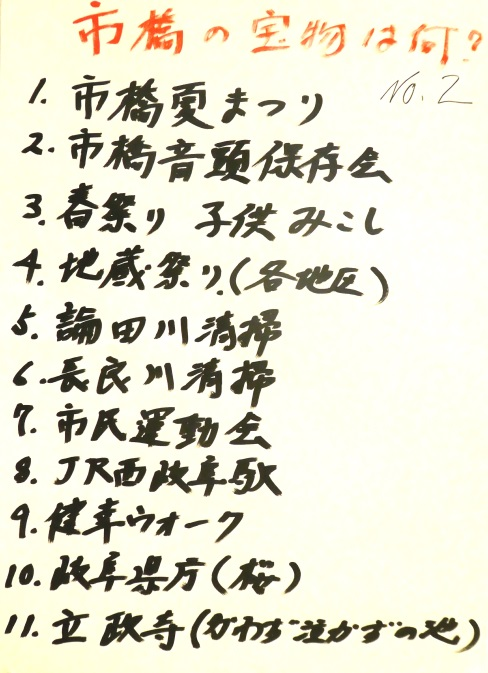 市橋の宝物は何?
No.2
1. 市橋夏まつり
2. 市橋音頭保存会
3. 春祭り 子供みこし
4. 地蔵祭り(各地区)
5. 論田川清掃
6. 長良川清掃
7. 市民運動会
8. JR西岐阜駅
9. 健幸ウオーク
10. 岐阜県庁(桜)
11. 立政寺(かわず泣かずの池)